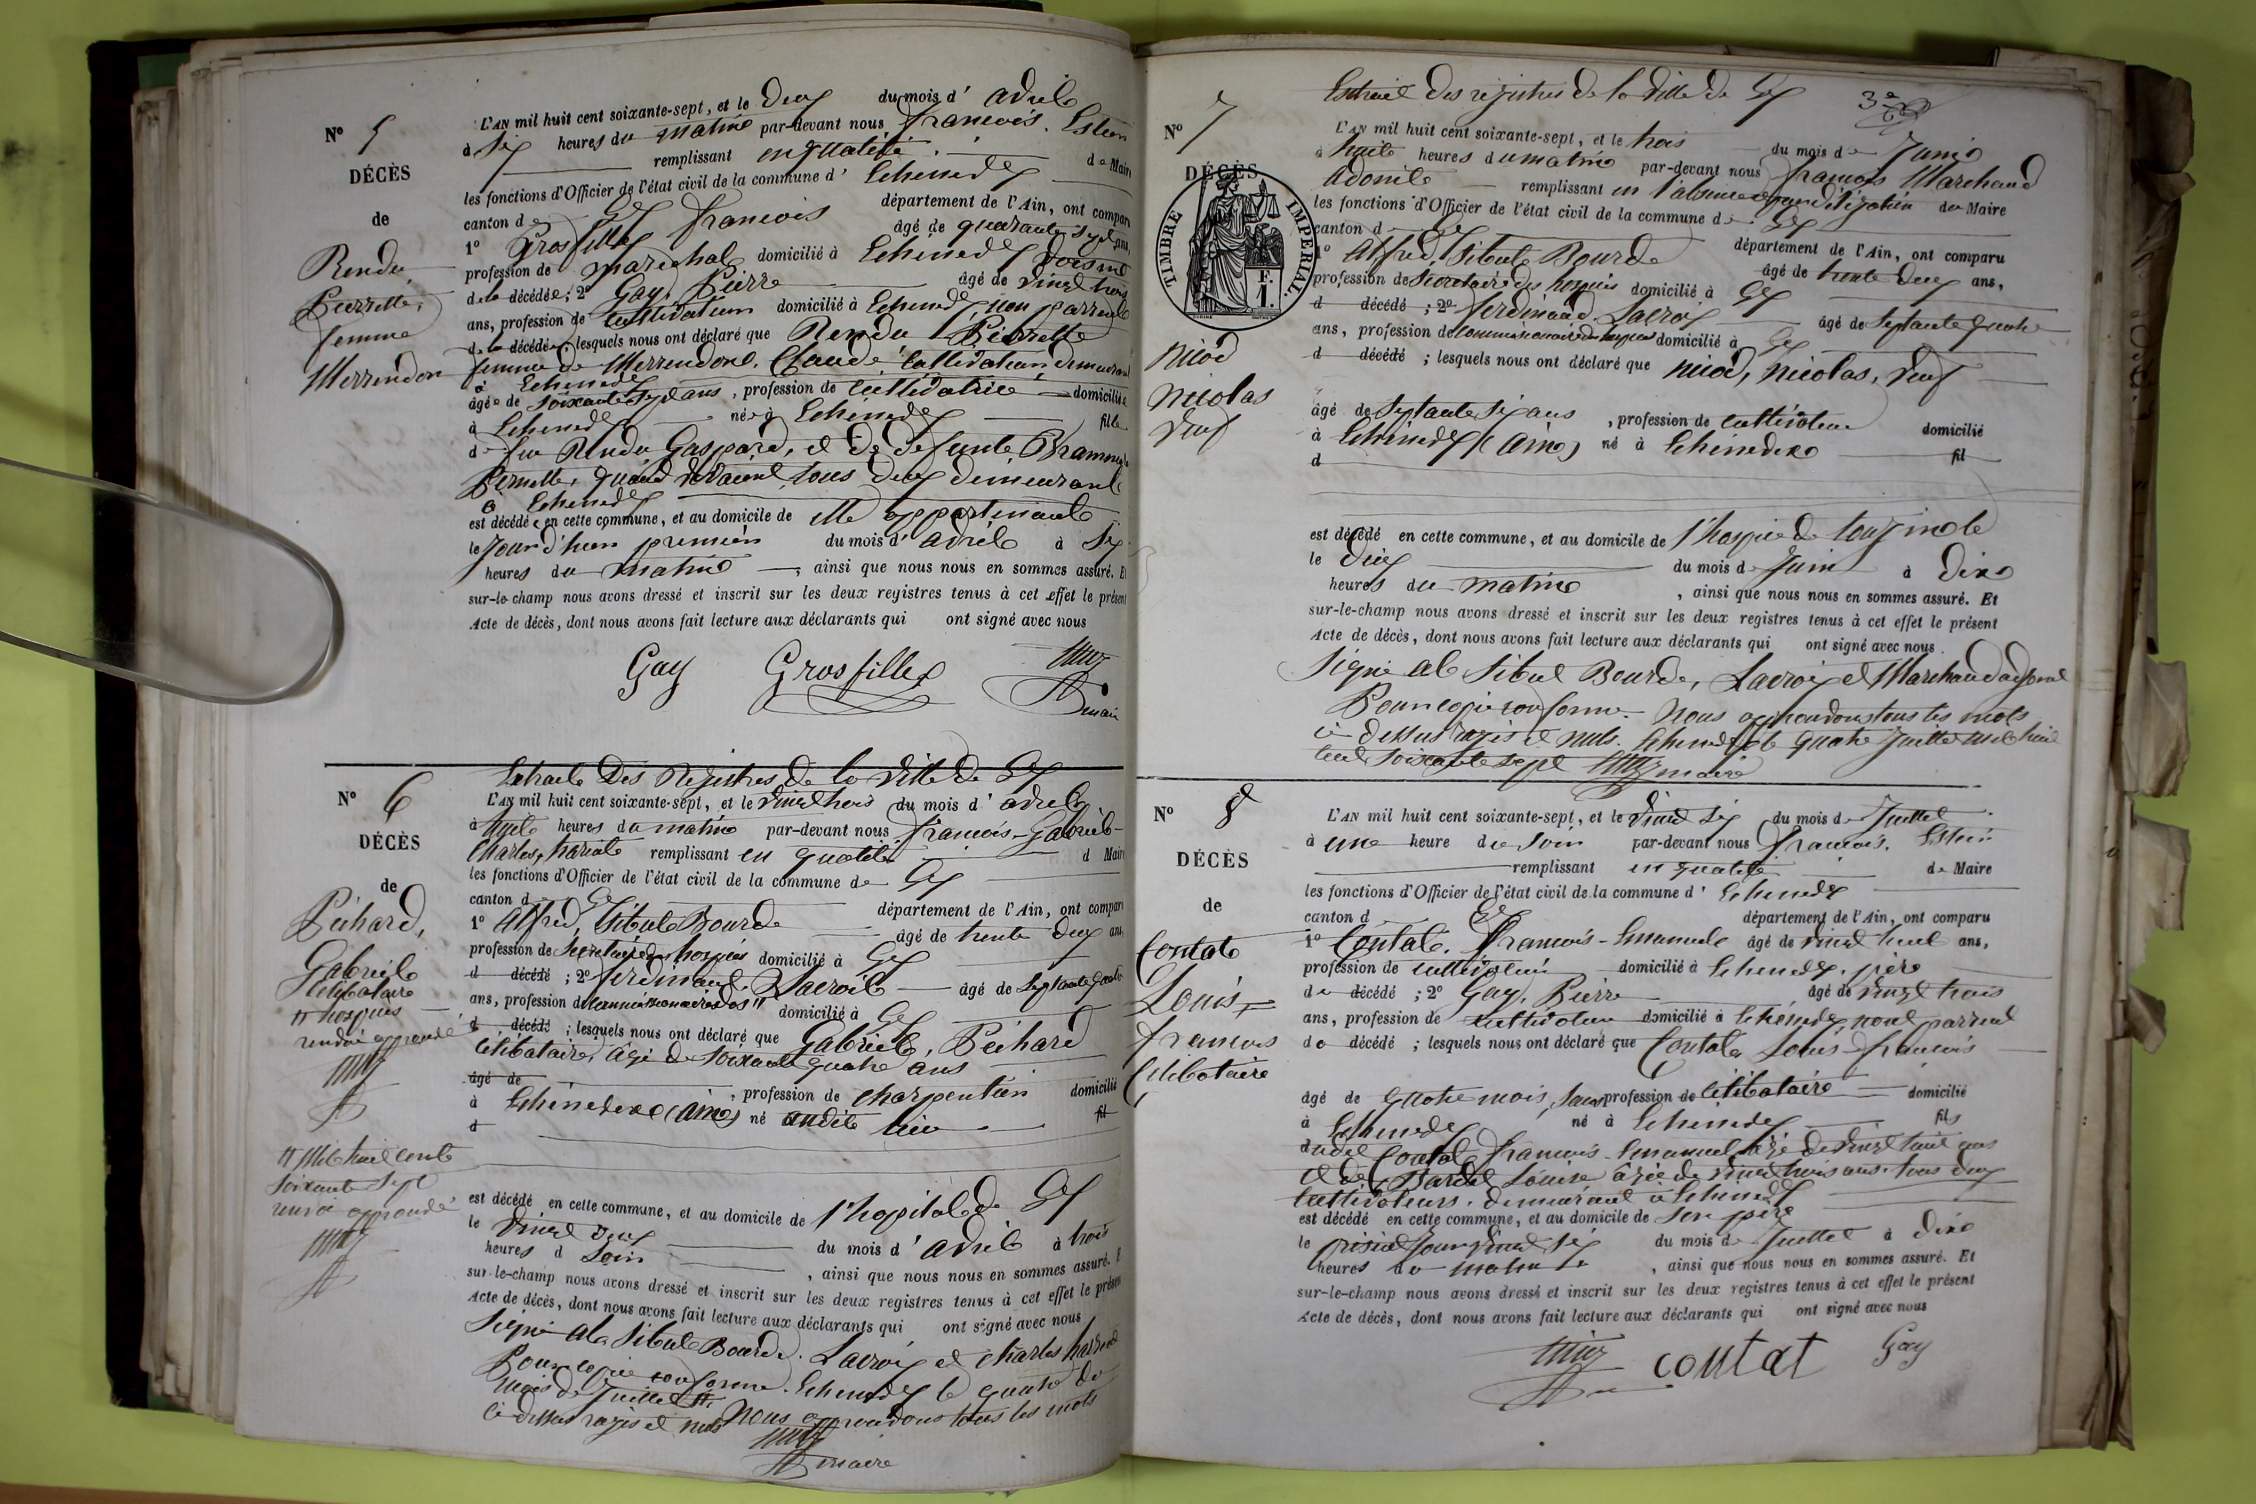 N° 5
DÉCÈS
de
Rendu
Pierrette,
femme
Merrendon
L'AN mil huit cent soixante-sept, et le deux du mois d' avril
à six heures du matin par-devant nous François.
remplissant en qualité de Maire
les fonctions d'Officier de l'état civil de la commune d' Echenevex
canton de Gex département de l'Ain, ont comparu
1° Grosfilley François âgé de quarante sept ans,
profession de maréchal domicilié à Echenevex voisin
de la décédée ; 2° Gay, Pierre âgé de vingt trois
ans, profession de cultivateur domicilié à Echenevex, non parrent
de la décédée, lesquels nous ont déclaré que Rendu Pierrette
femme de Merrendon, Claude, cultivateur, demeurant
à Echenevex
âgée de soixante sept ans, profession de cultivatrice domiciliée
à Echenevex née à Echenevex fille
de feu Rendu Gaspard, et de défunte
Pernette, quand vivaient tous deux demeurant
à Echenevex
est décédée en cette commune, et au domicile de elle appartenant
le jour d'hier premier du mois d' avril à six
heures du matin, ainsi que nous nous en sommes assuré. Et
sur-le-champ nous avons dressé et inscrit sur les deux registres tenus à cet effet le présent
Acte de décès, dont nous avons fait lecture aux déclarants qui ont signé avec nous
Gay Grosfilley
maire
N° 6
DÉCÈS
de
Péchard,
Gabriel
célibataire
# hospices
renvoi approuvé
# Mil huit cent
soixante sept
renvoi approuvé
Extrait des Registres de la ville de Gex
L'AN mil huit cent soixante-sept, et le vingt trois du mois d' avril
à huit heures du matin par-devant nous François-Gabriel-
Charles, remplissant en qualité d Maire
les fonctions d'Officier de l'état civil de la commune de Gex
canton d Gex département de l'Ain, ont comparu
1° Alfred, Sibut Bourde âgé de trente deux ans,
profession de secrétaire des hospices domicilié à Gex
d décédé ; 2° Ferdinand Lacroix âgé de septante quatre
ans, profession de commissionnaire des # domicilié à Gex
d décédé ; lesquels nous ont déclaré que Gabriel, Péchard
célibataire, âgé de soixante quatre ans
âgé de , profession de charpentier domicilié
à Echenevex (Ain) né audit lieu fil
d
est décédé en cette commune, et au domicile de l'hopital de Gex
le vingt deux du mois d' avril à trois
heures d soir, ainsi que nous nous en sommes assuré. E
sur-le-champ nous avons dressé et inscrit sur les deux registres tenus à cet effet le présent
Acte de décès, dont nous avons fait lecture aux déclarants qui ont signé avec nous
Signé Ab Sibut Bourde. Lacroix et Charles
Pour copie conforme. Echenevex le quatre du
mois de Juillet #. Nous approuvons tous les mots
ci-dessus rayés et nuls
maire
Extrait des registres de la ville de Gex
3e
N° 7
DÉCÈS
TIMBRE IMPERIAL.
F.
1.
Nicod
Nicolas
veuf
L'AN mil huit cent soixante-sept, et le trois du mois de Juin
à huit heures du matin par-devant nous François Marchand
adjoint remplissant en l'absence et par délégation du Maire
les fonctions d'Officier de l'état civil de la commune de Gex
canton d Gex département de l'Ain, ont comparu
1° Alfred, Sibut Bourde âgé de trente deux ans,
profession de secrétaire des hospices domicilié à Gex
d décédé ; 2° Ferdinand Lacroix âgé de septante quatre
ans, profession de commissionnaire des hospices domicilié à Gex
d décédé ; lesquels nous ont déclaré que Nicod, Nicolas, veuf
âgé de septante six ans, profession de cultivateur domicilié
à Echenevex (Ain) né à Echenevex fil
d
est décédé en cette commune, et au domicile de l'hospice de
le deux du mois de Juin à dix
heures du matin, ainsi que nous nous en sommes assuré. Et
sur-le-champ nous avons dressé et inscrit sur les deux registres tenus à cet effet le présent
Acte de décès, dont nous avons fait lecture aux déclarants qui ont signé avec nous.
Signé Ab Sibut Bourde, Lacroix et Marchand adjoint
Pour copie conforme. Nous approuvons tous les mots
ci-dessus rayés et nuls. Echenevex le quatre Juillet mil huit
cent soixante sept maire
N° 8
DÉCÈS
de
Contat
Louis,
François
Célibataire
L'AN mil huit cent soixante-sept, et le vingt six du mois de Juillet
à une heure du soir par-devant nous François.
remplissant en qualité de Maire
les fonctions d'Officier de l'état civil de la commune d' Echenevex
canton d Gex département de l'Ain, ont comparu
1° Contat. François-Emanuel âgé de vingt huit ans,
profession de cultivateur domicilié à Echenevex, père
du décédé ; 2° Gay, Pierre âgé de vingt trois
ans, profession de cultivateur domicilié à Echenevex, non parrent
du décédé ; lesquels nous ont déclaré que Contat Louis-François
âgé de quatre mois, sans profession de célibataire domicilié
à Echenevex né à Echenevex fils
dudit Contat François-Emanuel âgé de vingt huit ans
et de Bardet Louise âgée de vingt trois ans. tous deux
cultivateurs. demeurant à Echenevex
est décédé en cette commune, et au domicile de son père
le présent jour vingt six du mois de Juillet à dix
heures du matin, ainsi que nous nous en sommes assuré. Et
sur-le-champ nous avons dressé et inscrit sur les deux registres tenus à cet effet le présent
Acte de décès, dont nous avons fait lecture aux déclarants qui ont signé avec nous
contat Gay